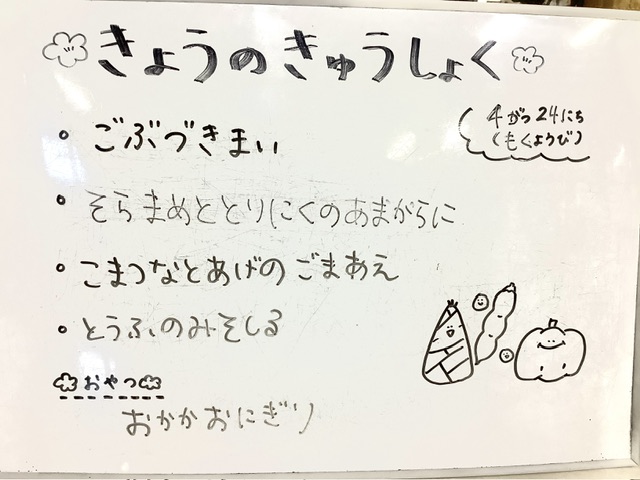 きょうのきゅうしょく
4がつ24にち
(もくようび)
・ごぶづきまい
・そらまめととりにくのあまがらに
・こまつなとあげのごまあえ
・とうふのみそしる
おやつ
おかかおにぎり